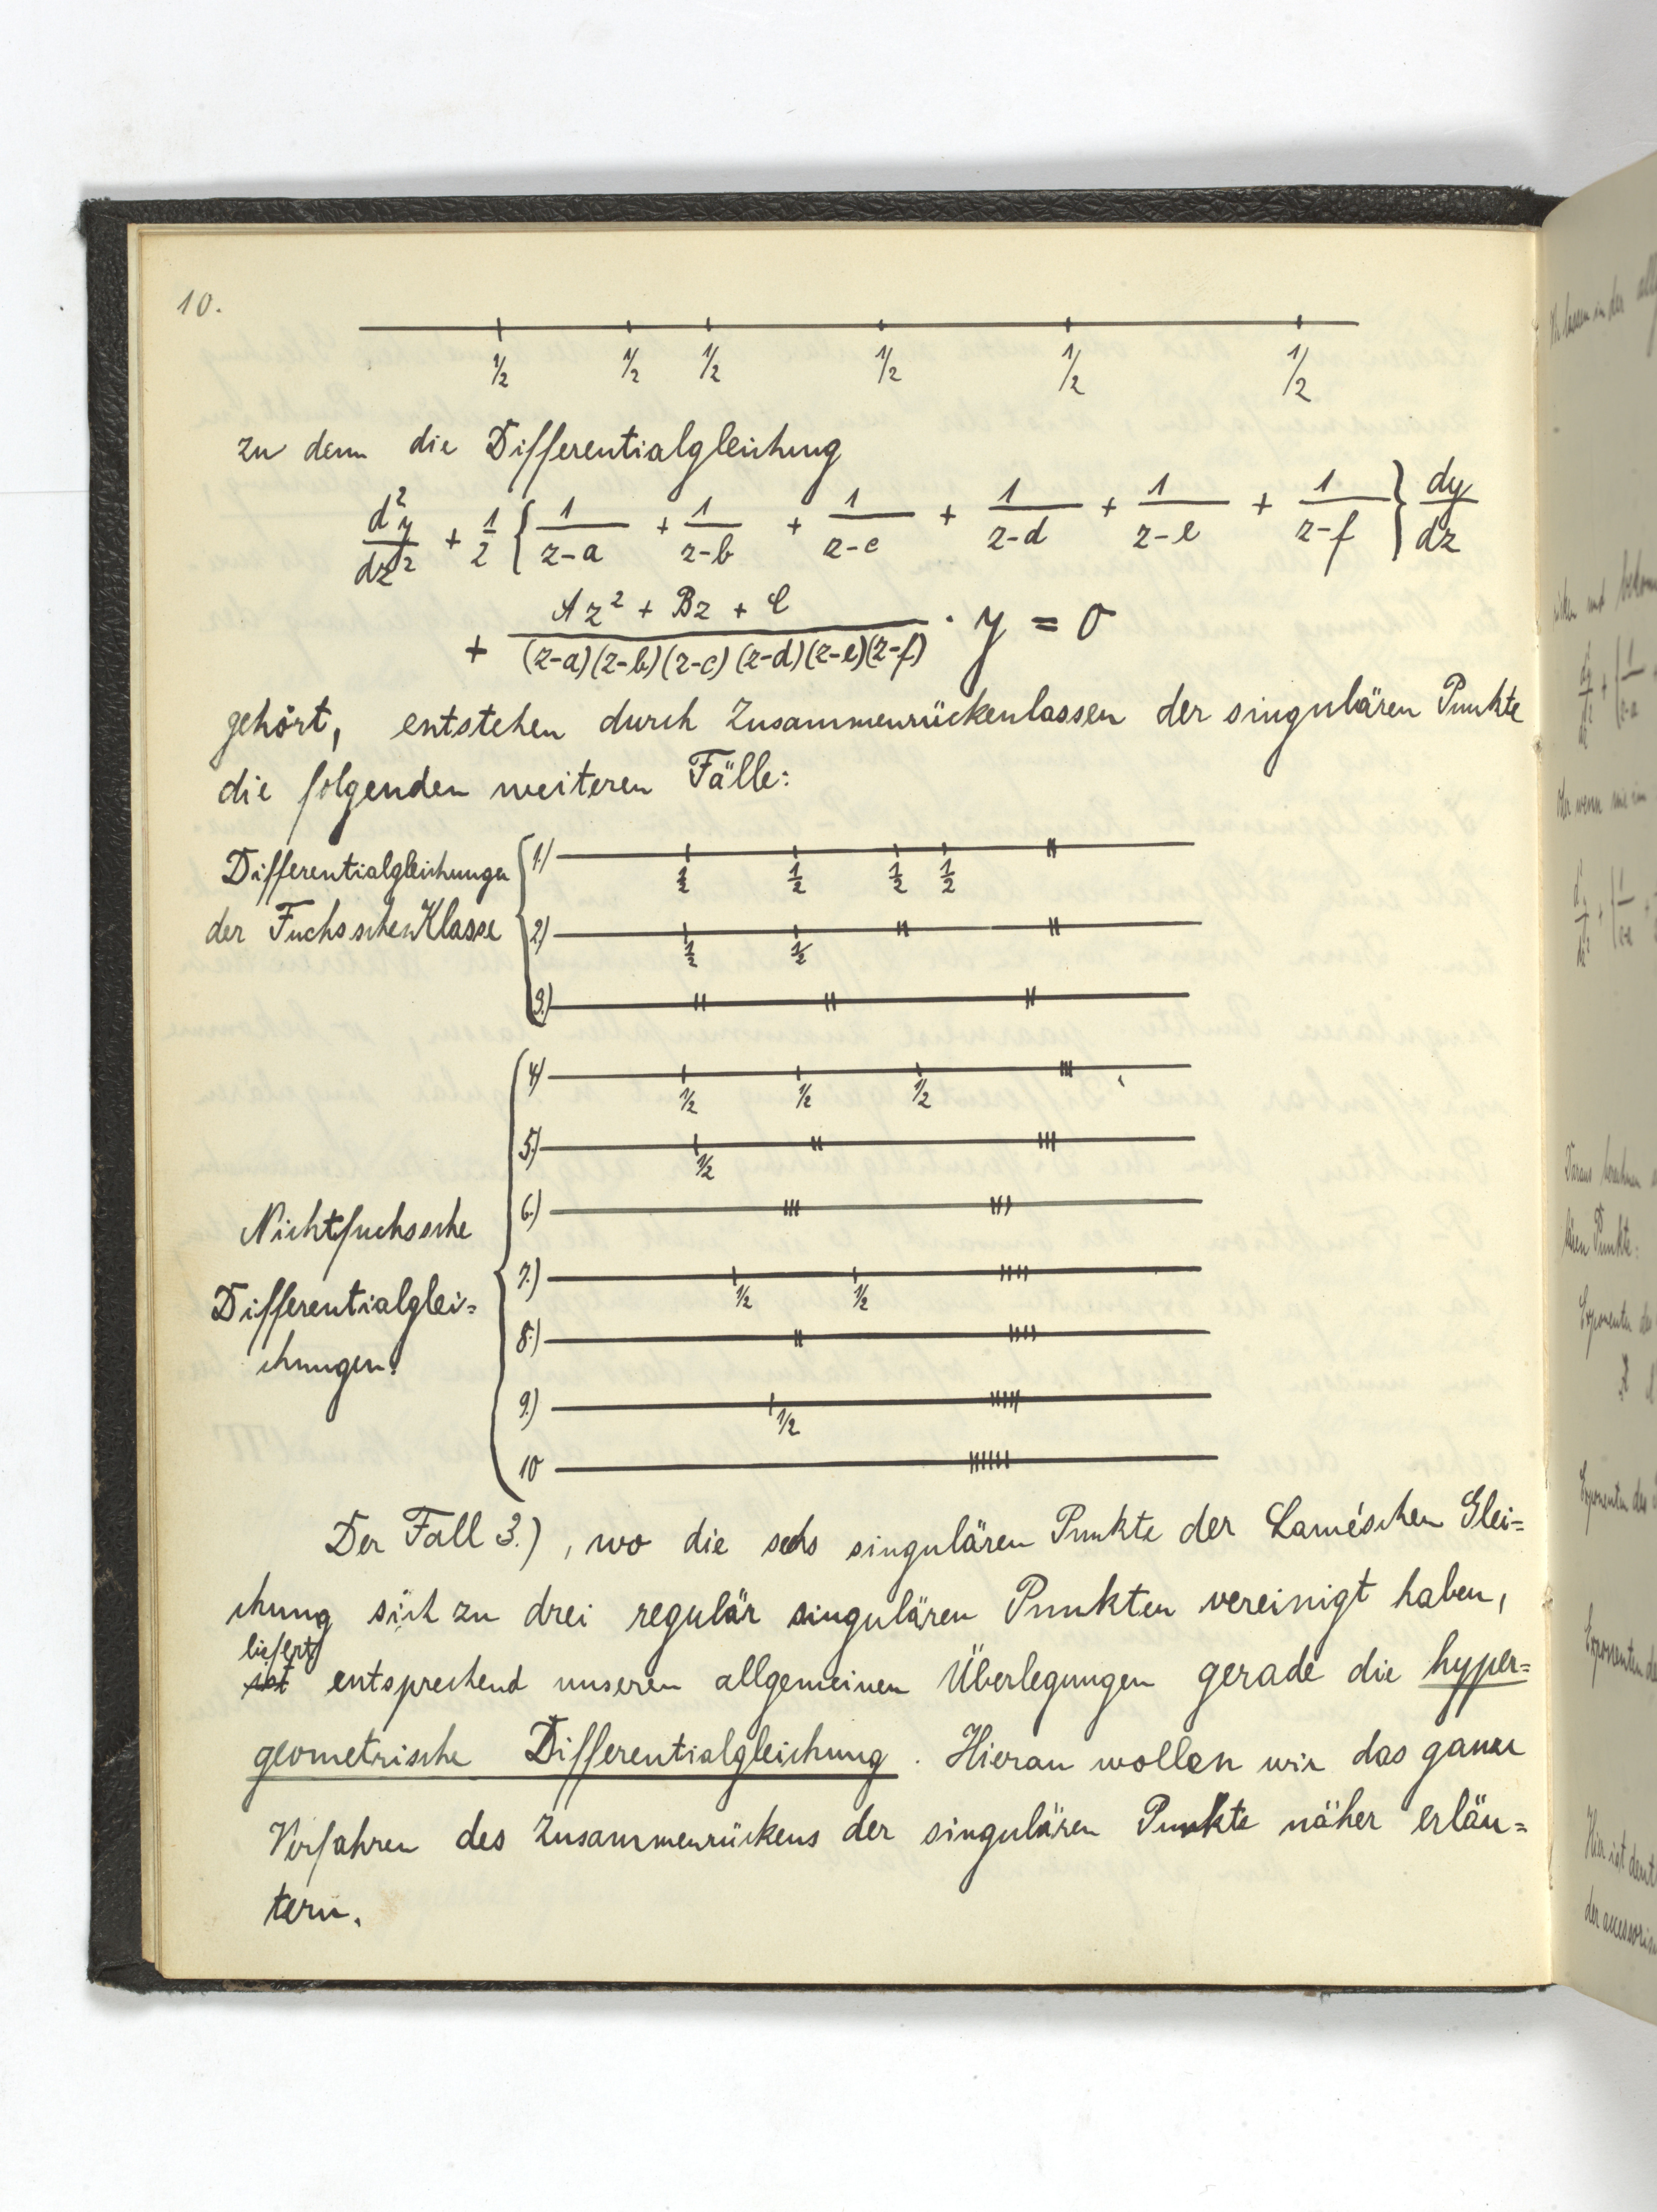 10.
1/2 1/2 1/2 1/2 1/2 1/2
zu dem die Differentialgleichung
d²y/dz² + 1/2 { 1/(z-a) + 1/(z-b) + 1/(z-c) + 1/(z-d) + 1/(z-e) + 1/(z-f) } dy/dz
+ (Az² + Bz + C)/((z-a)(z-b)(z-c)(z-d)(z-e)(z-f)) · y = 0
gehört, entstehen durch Zusammenrückenlassen der singulären Punkte
die folgenden weiteren Fälle:
Differentialgleichungen
der Fuchsschen Klasse
1.) 1/2 1/2 1/2 1/2
2.) 1/2 1/2
3.)
Nichtfuchssche
Differentialglei=
chungen.
4.) 1/2 1/2 1/2
5.) 1/2
6.)
7.) 1/2 1/2
8.)
9.) 1/2
10
Der Fall 3.), wo die sechs singulären Punkte der Laméschen Glei=
chung sich zu drei regulär singulären Punkten vereinigt haben,
liefert
ist entsprechend unseren allgemeinen Überlegungen gerade die hyper=
geometrische Differentialgleichung. Hieran wollen wir das ganze
Verfahren des Zusammenrückens der singulären Punkte näher erläu=
tern.